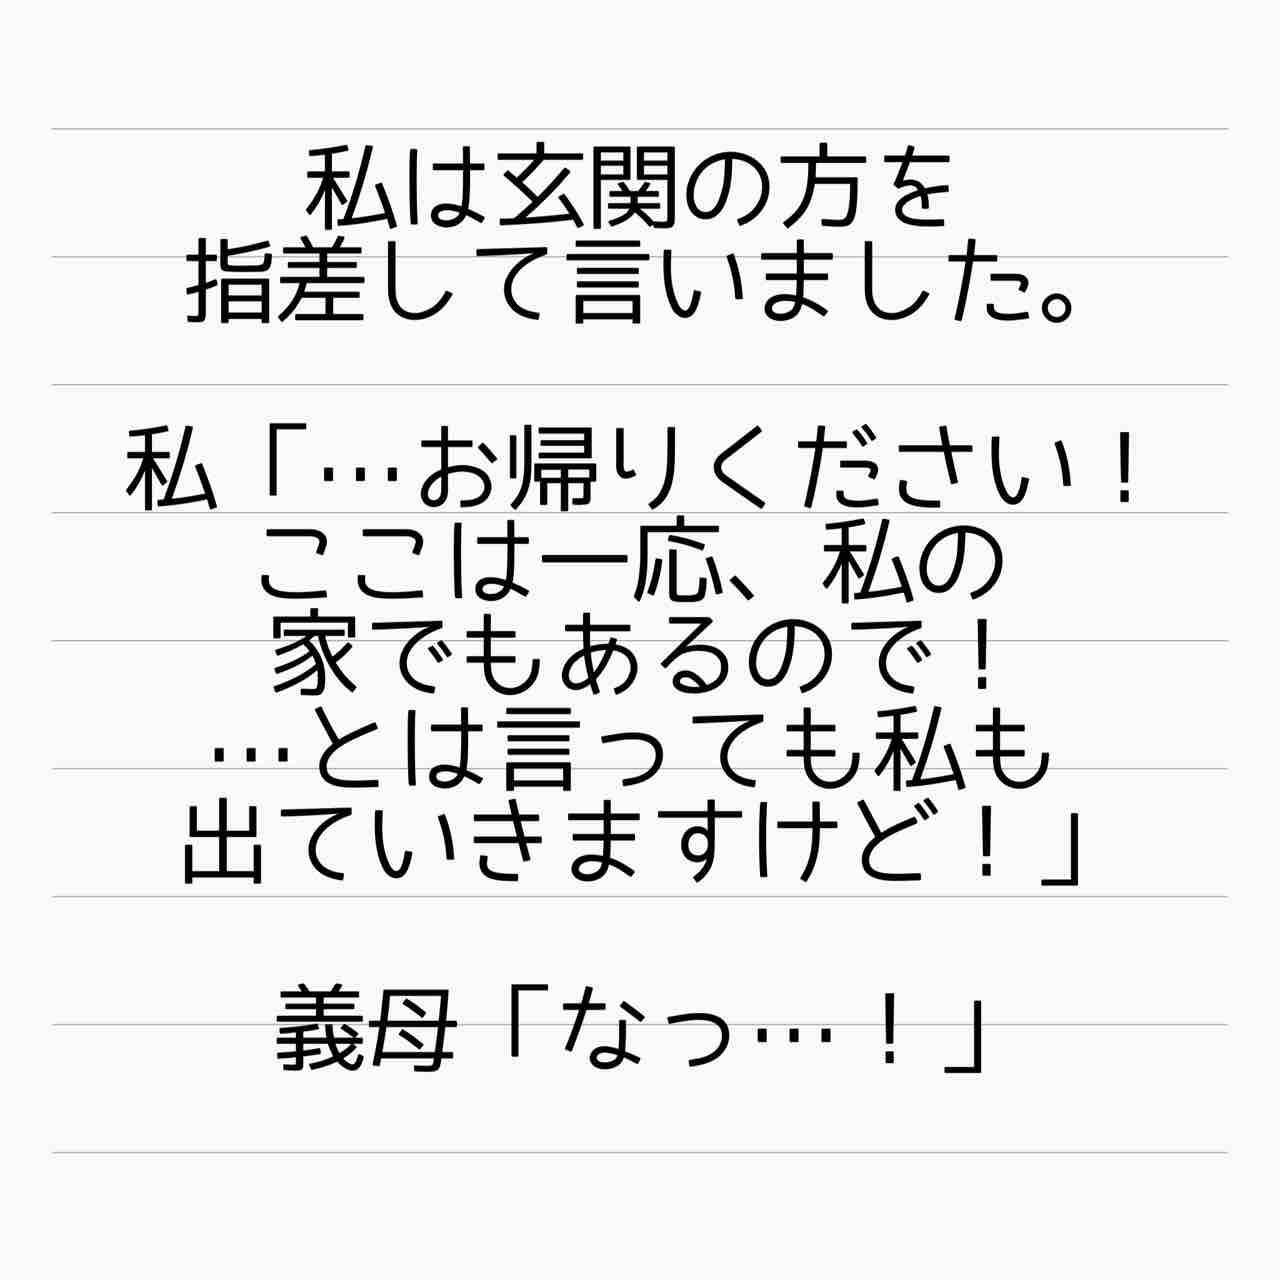 私は玄関の方を
指差して言いました。
私「…お帰りください！
ここは一応、私の
家でもあるので！
…とは言っても私も
出ていきますけど！」
義母「なっ…！」